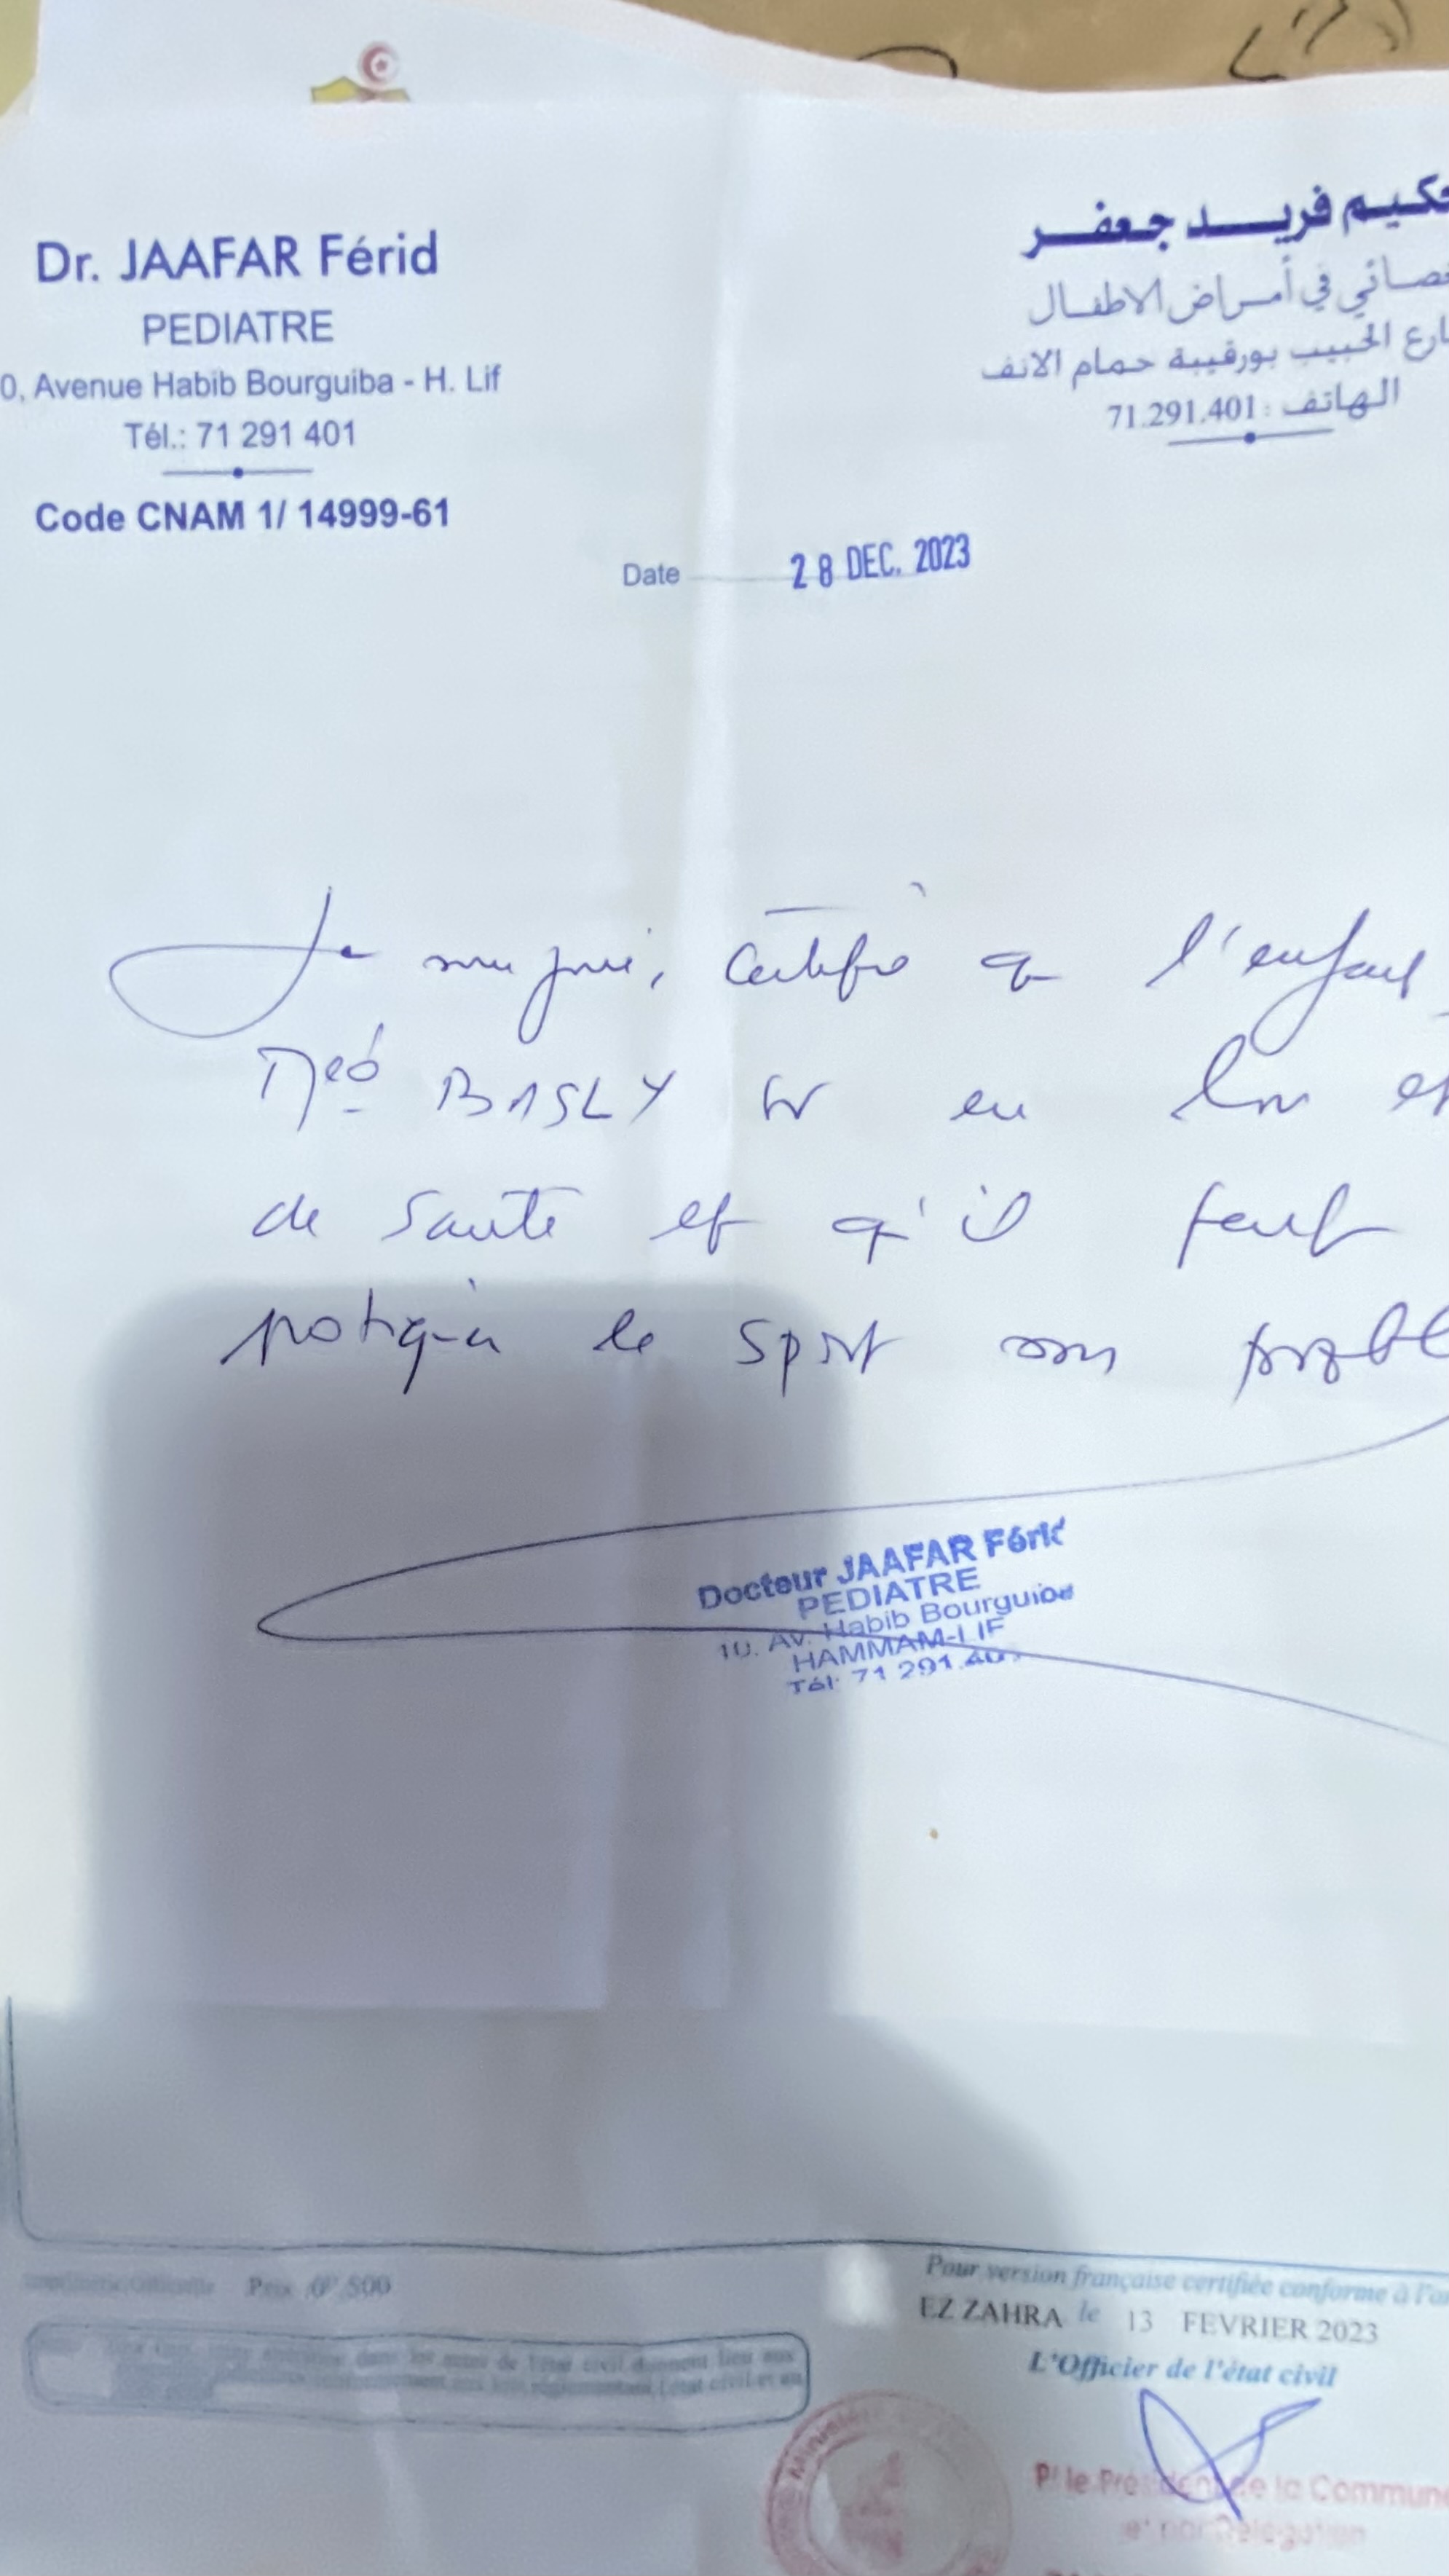 Dr. JAAFAR Férid
PEDIATRE
0, Avenue Habib Bourguiba - H. Lif
Tél.: 71 291 401
Code CNAM 1/ 14999-61
كيم فريد جعفر
صائي في أمراض الاطفال
ارع الحبيب بورقيبة حمام الانف
الهاتف : 71.291.401
Date 28 DEC. 2023
Je certifie q l'enfant
Med BASLY en bon et
de santé et q' il peut
pratiquer le sport sans probl
Docteur JAAFAR Férid
PEDIATRE
10, Av. Habib Bourguiba
HAMMAM-LIF
Tél: 71 291.401
Prix 0D,500
Pour version française certifiée conforme à l'or
EZ ZAHRA le 13 FEVRIER 2023
L'Officier de l'état civil
P/ le Président de la Commune
et par Délégation